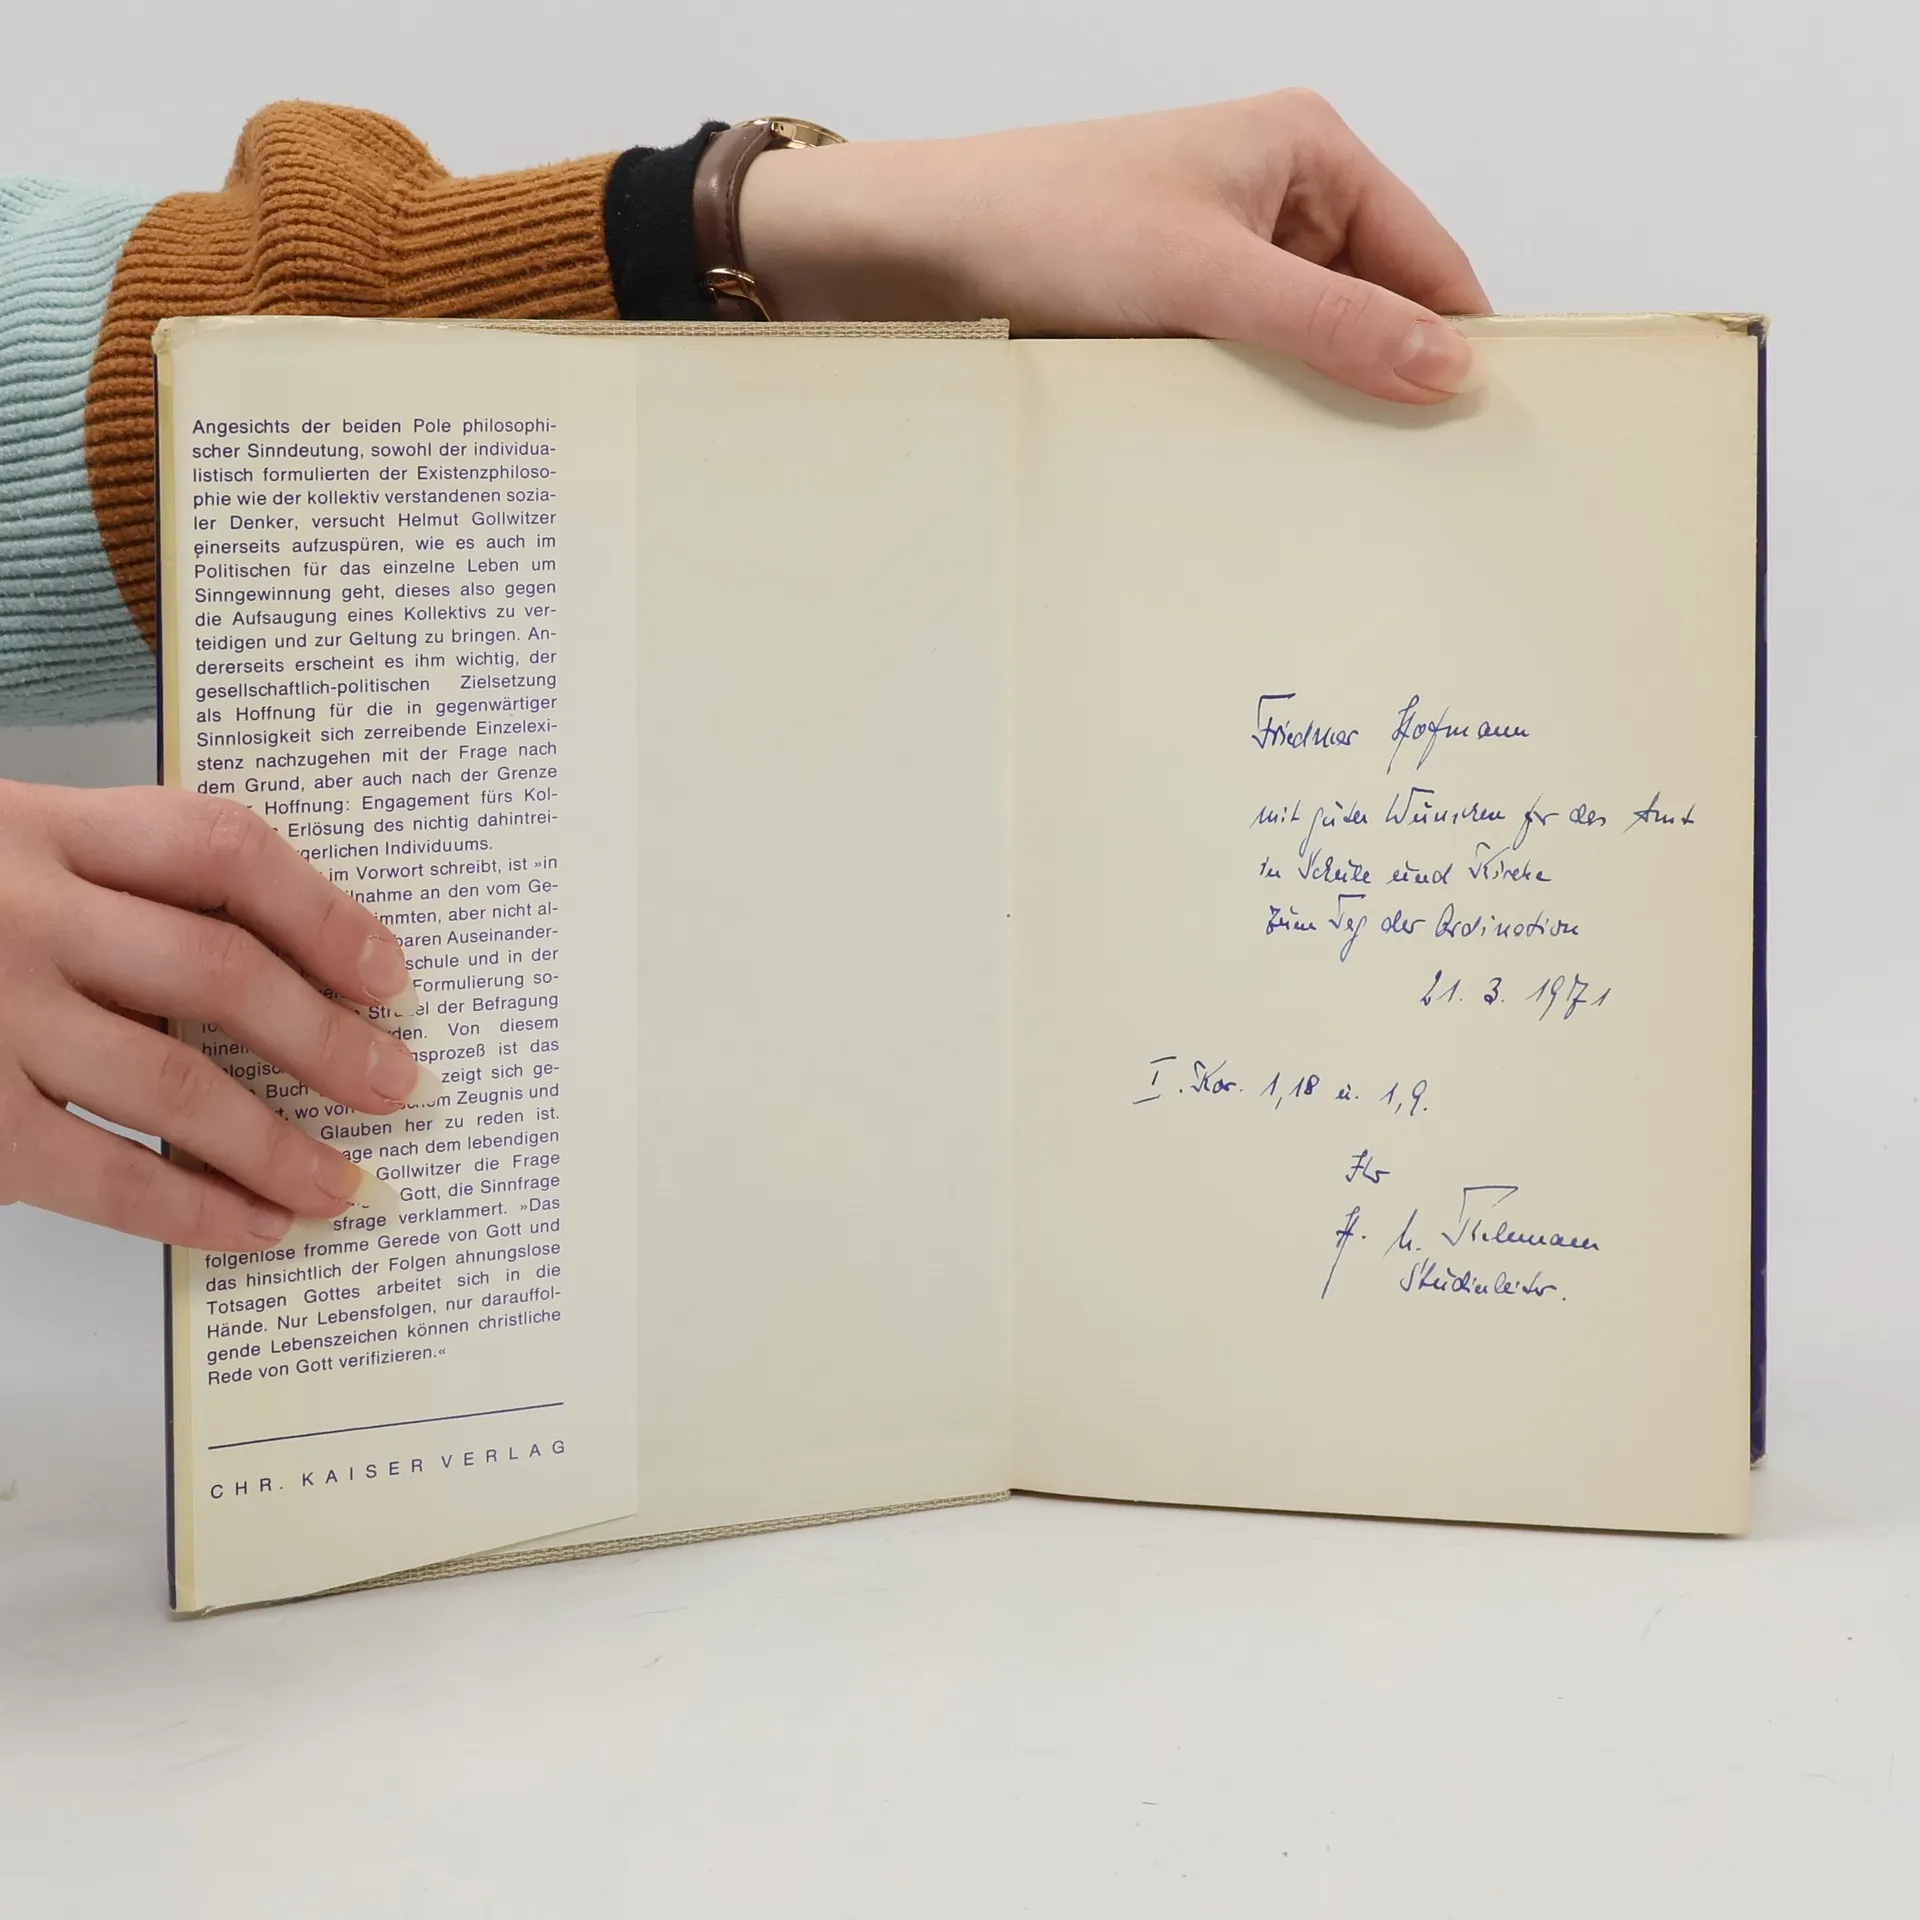 Angesichts der beiden Pole philosophi-
scher Sinndeutung, sowohl der individua-
listisch formulierten der Existenzphiloso-
phie wie der kollektiv verstandenen sozia-
ler Denker, versucht Helmut Gollwitzer
einerseits aufzuspüren, wie es auch im
Politischen für das einzelne Leben um
Sinngewinnung geht, dieses also gegen
die Aufsaugung eines Kollektivs zu ver-
teidigen und zur Geltung zu bringen. An-
dererseits erscheint es ihm wichtig, der
gesellschaftlich-politischen Zielsetzung
als Hoffnung für die in gegenwärtiger
Sinnlosigkeit sich zerreibende Einzelexi-
stenz nachzugehen mit der Frage nach
dem Grund, aber auch nach der Grenze
Hoffnung: Engagement fürs Kol-
Erlösung des nichtig dahintrei-
gerlichen Individuums.
im Vorwort schreibt, ist »in
lnahme an den vom Ge-
immten, aber nicht al-
baren Auseinander-
schule und in der
Formulierung so-
der Befragung
den. Von diesem
gsprozeß ist das
zeigt sich ge-
Buch
wo von Zeugnis und
Glauben her zu reden ist.
age nach dem lebendigen
Gollwitzer die Frage
Gott, die Sinnfrage
sfrage verklammert. »Das
folgenlose fromme Gerede von Gott und
das hinsichtlich der Folgen ahnungslose
Totsagen Gottes arbeitet sich in die
Hände. Nur Lebensfolgen, nur darauffol-
gende Lebenszeichen können christliche
Rede von Gott verifizieren.«
CHR. KAISER VERLAG
Friedmar Hofmann
mit guten Wünschen für das Amt
in Schule und Kirche
zum Tag der Ordination
21. 3. 1971
I. Kor. 1,18 u. 1,9.
Ihr
H.
Studienleiter.